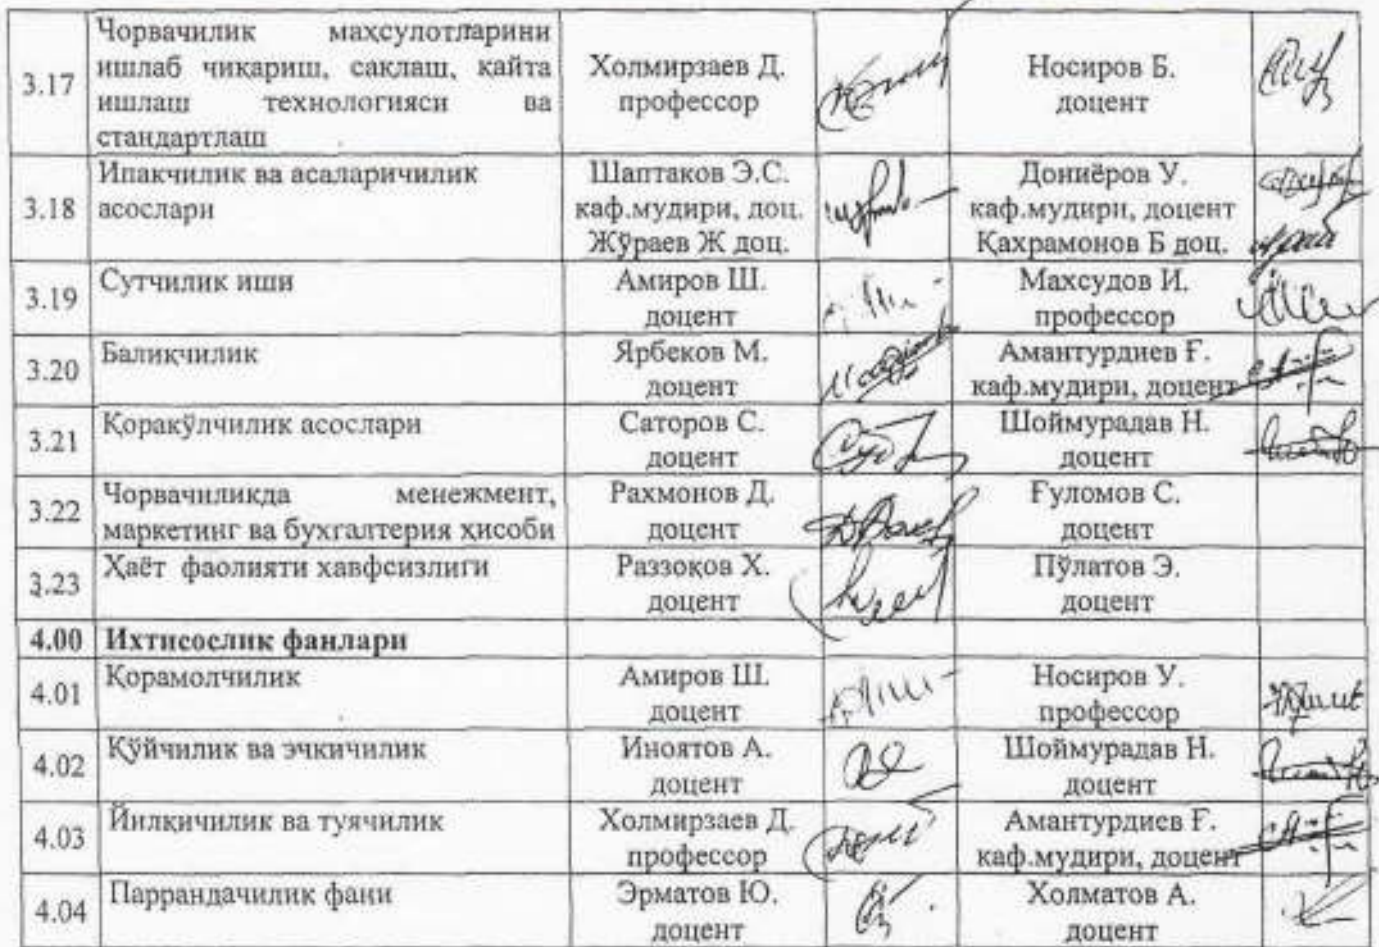 3.17
Чорвачилик маҳсулотларини
ишлаб чиқариш, сақлаш, қайта
ишлаш технологияси ва
стандартлаш
Холмирзаев Д.
профессор
Носиров Б.
доцент
3.18
Ипакчилик ва асаларичилик
асослари
Шаптаков Э.С.
каф.мудири, доц.
Жўраев Ж доц.
Дониёров У.
каф.мудири, доцент
Қахрамонов Б доц.
3.19
Сутчилик иши
Амиров Ш.
доцент
Махсудов И.
профессор
3.20
Балиқчилик
Ярбеков М.
доцент
Амантурдиев Ғ.
каф.мудири, доцент
3.21
Қоракўлчилик асослари
Саторов С.
доцент
Шоймурадав Н.
доцент
3.22
Чорвачиликда менежмент,
маркетинг ва бухгалтерия ҳисоби
Рахмонов Д.
доцент
Ғуломов С.
доцент
3.23
Ҳаёт фаолияти хавфсизлиги
Раззоқов Х.
доцент
Пўлатов Э.
доцент
4.00
Ихтисослик фанлари
4.01
Қорамолчилик
Амиров Ш.
доцент
Носиров У.
профессор
4.02
Қўйчилик ва эчкичилик
Иноятов А.
доцент
Шоймурадав Н.
доцент
4.03
Йилқичилик ва туячилик
Холмирзаев Д.
профессор
Амантурдиев Ғ.
каф.мудири, доцент
4.04
Паррандачилик фани
Эрматов Ю.
доцент
Холматов А.
доцент